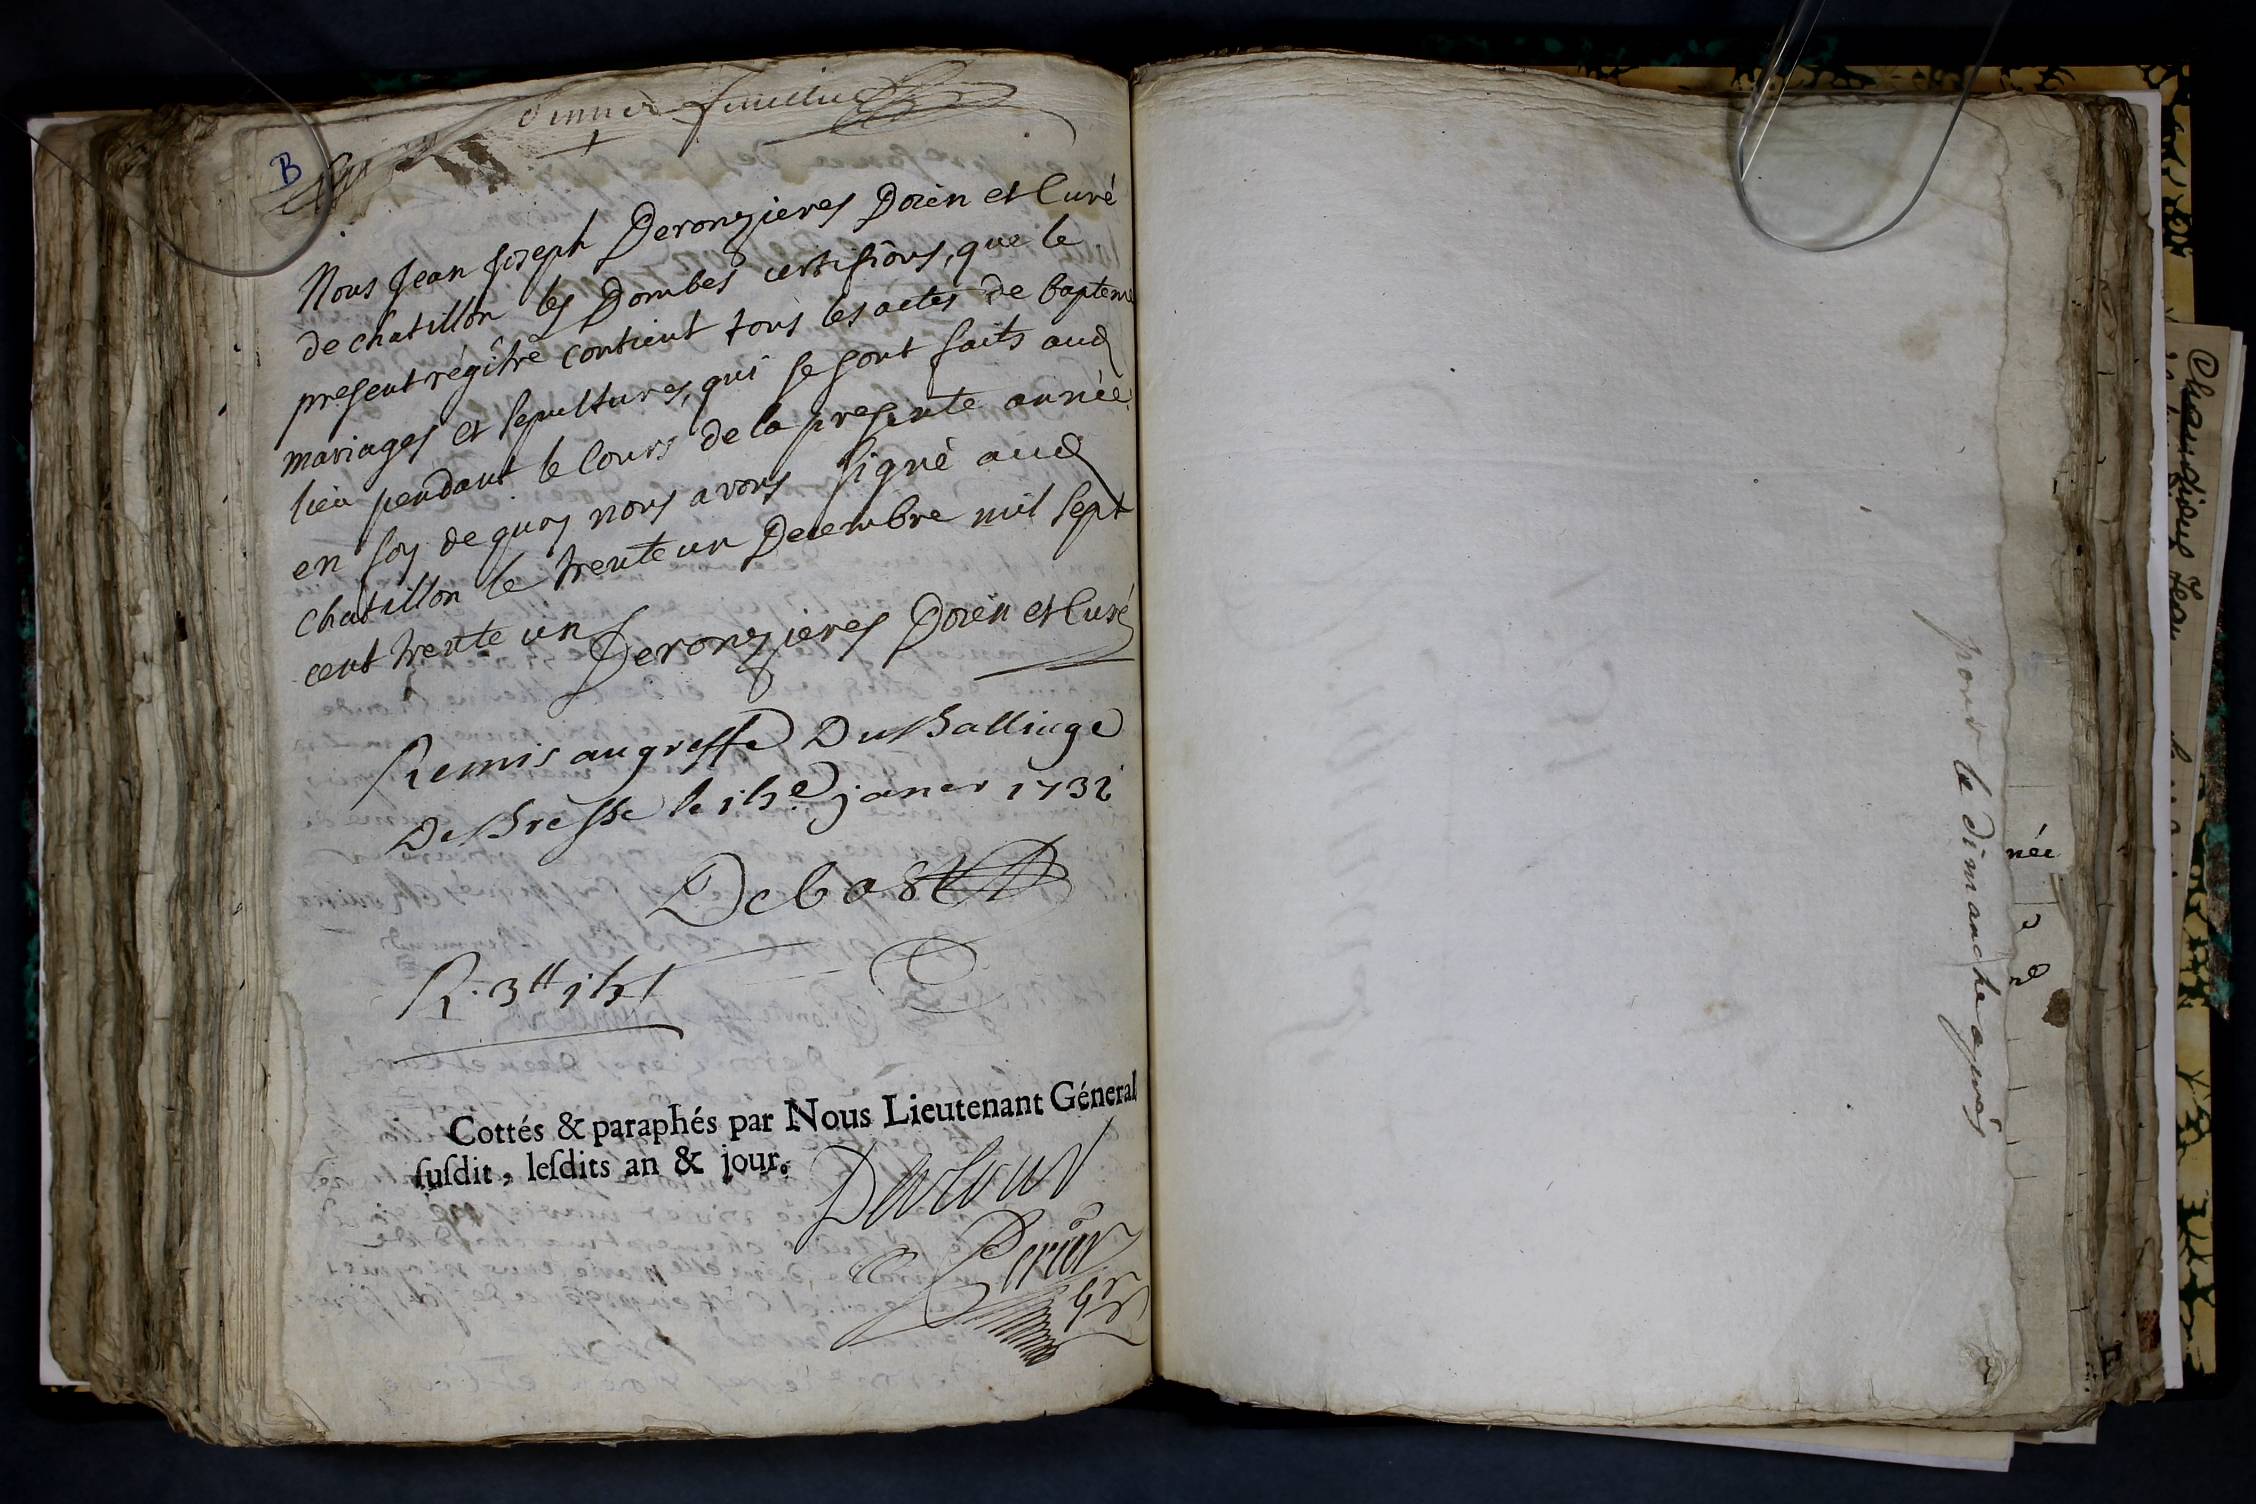 B
dernier feuillet
Nous Jean Joseph Deronzieres Doièn et Curé
de chatillon les Dombes certifions, que le
present régitre contient tous les actes de bapteme
mariages et sepultures, qui se sont faits aud
lieu pendant le cours de la presente année
en foy de quoy nous avons signé aud
chatillon le trente un Decembre mil sept
cent trente un Deronzieres Doièn et Curé
Remis au greffe Du Balliage
De Bresse le 15e janer 1732
Debost
R. 3tt 15s
Cottés & paraphés par Nous Lieutenant Géneral
suſdit, leſdits an & jour.
Perier
gr
pour le dimanche apres
née
e
Jean